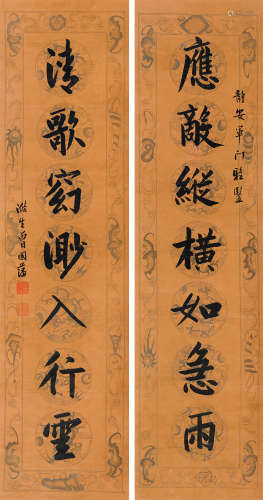 靜安軍門
應敵縱橫如急雨
清歌窈渺入行雲
滌生曾國藩